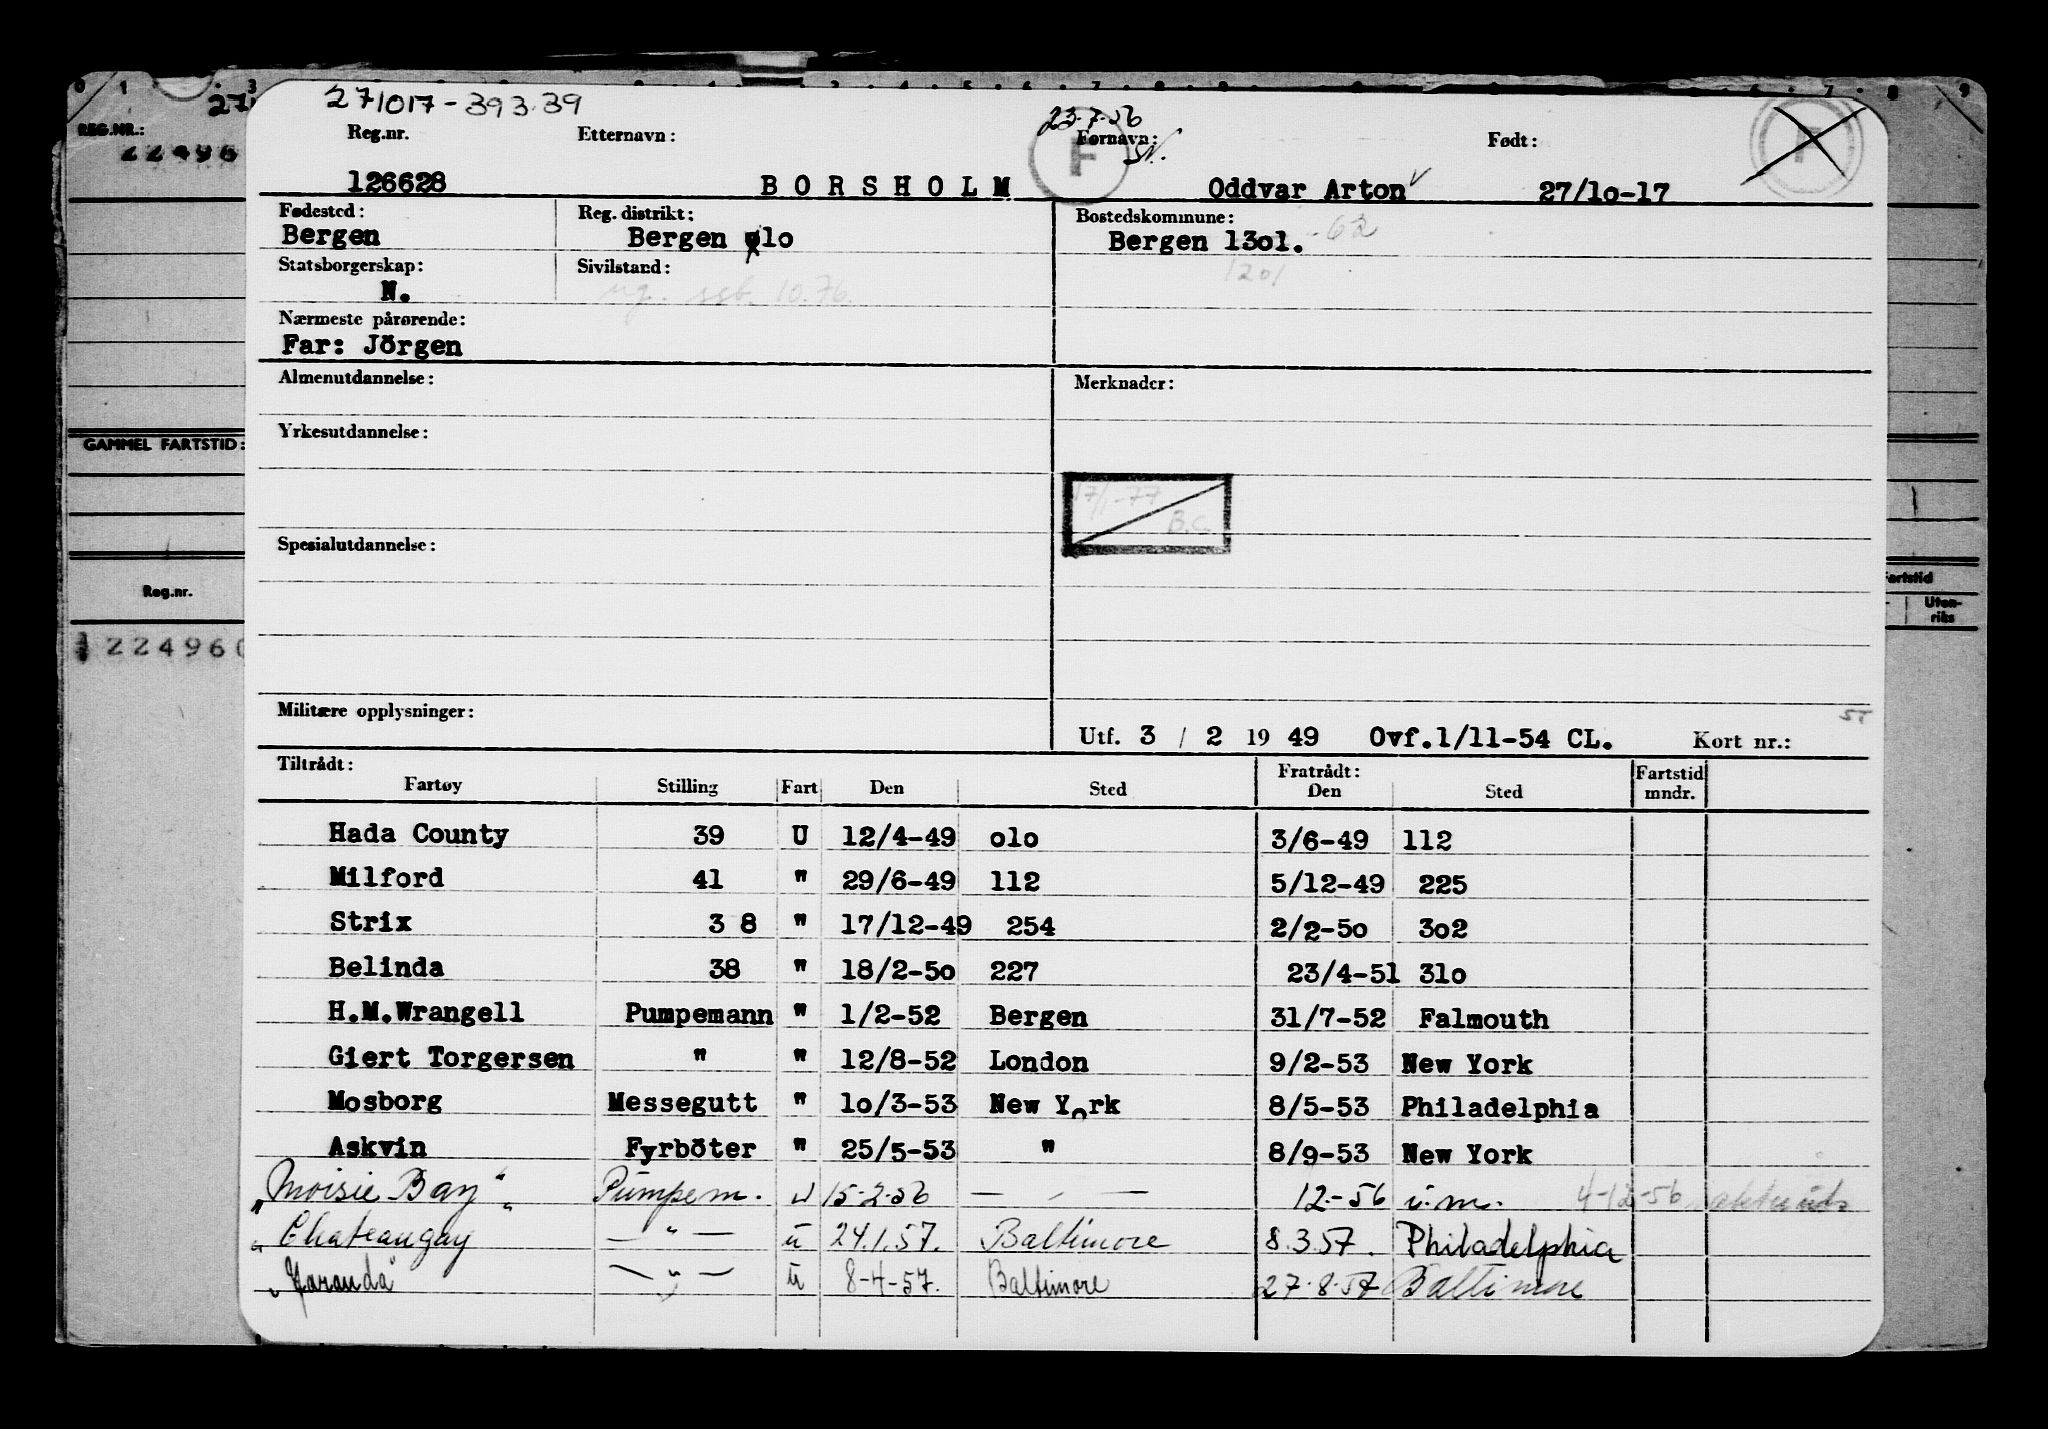 271017-393.39
23.7.56
Reg.nr. Etternavn: Fornavn: Født:
126628 BORSHOLM Oddvar Arton 27/1o-17
F
REG.NR.:
22496
Fødested: Reg. distrikt: Bostedskommune:
Bergen Bergen olo Bergen 13o1. -62
1201
Statsborgerskap: Sivilstand:
N. ug. seb. 10.76.
Nærmeste pårørende:
Far: Jörgen
Almenutdannelse: Merknader:
Yrkesutdannelse:
GAMMEL FARTSTID:
17/1-77
B.C.
Spesialutdannelse:
Reg.nr.
224960
Fartstid
Uten-
riks
Militære opplysninger:
Utf. 3 / 2 19 49 Ovf.1/11-54 CL. Kort nr.:
ST
Tiltrådt: Fratrådt: Fartstid
Fartøy Stilling Fart Den Sted Den Sted mndr.
Hada County 39 U 12/4-49 olo 3/6-49 112
Milford 41 " 29/6-49 112 5/12-49 225
Strix 3 8 " 17/12-49 254 2/2-5o 3o2
Belinda 38 " 18/2-5o 227 23/4-51 31o
H.M.Wrangell Pumpemann " 1/2-52 Bergen 31/7-52 Falmouth
Giert Torgersen " " 12/8-52 London 9/2-53 New York
Mosborg Messegutt " 1o/3-53 New York 8/5-53 Philadelphia
Askvin Fyrböter " 25/5-53 " 8/9-53 New York
"Moisie Bay" Pumpem. u 15-2-56 — - — 12.-56 u.m. 4-12-56
" Chateaugay — " — u 24.1.57. Baltimore 8.3.57. Philadelphia
"Jaranda" — " — u 8-4-57. Baltimore 27.8.57 Baltimore